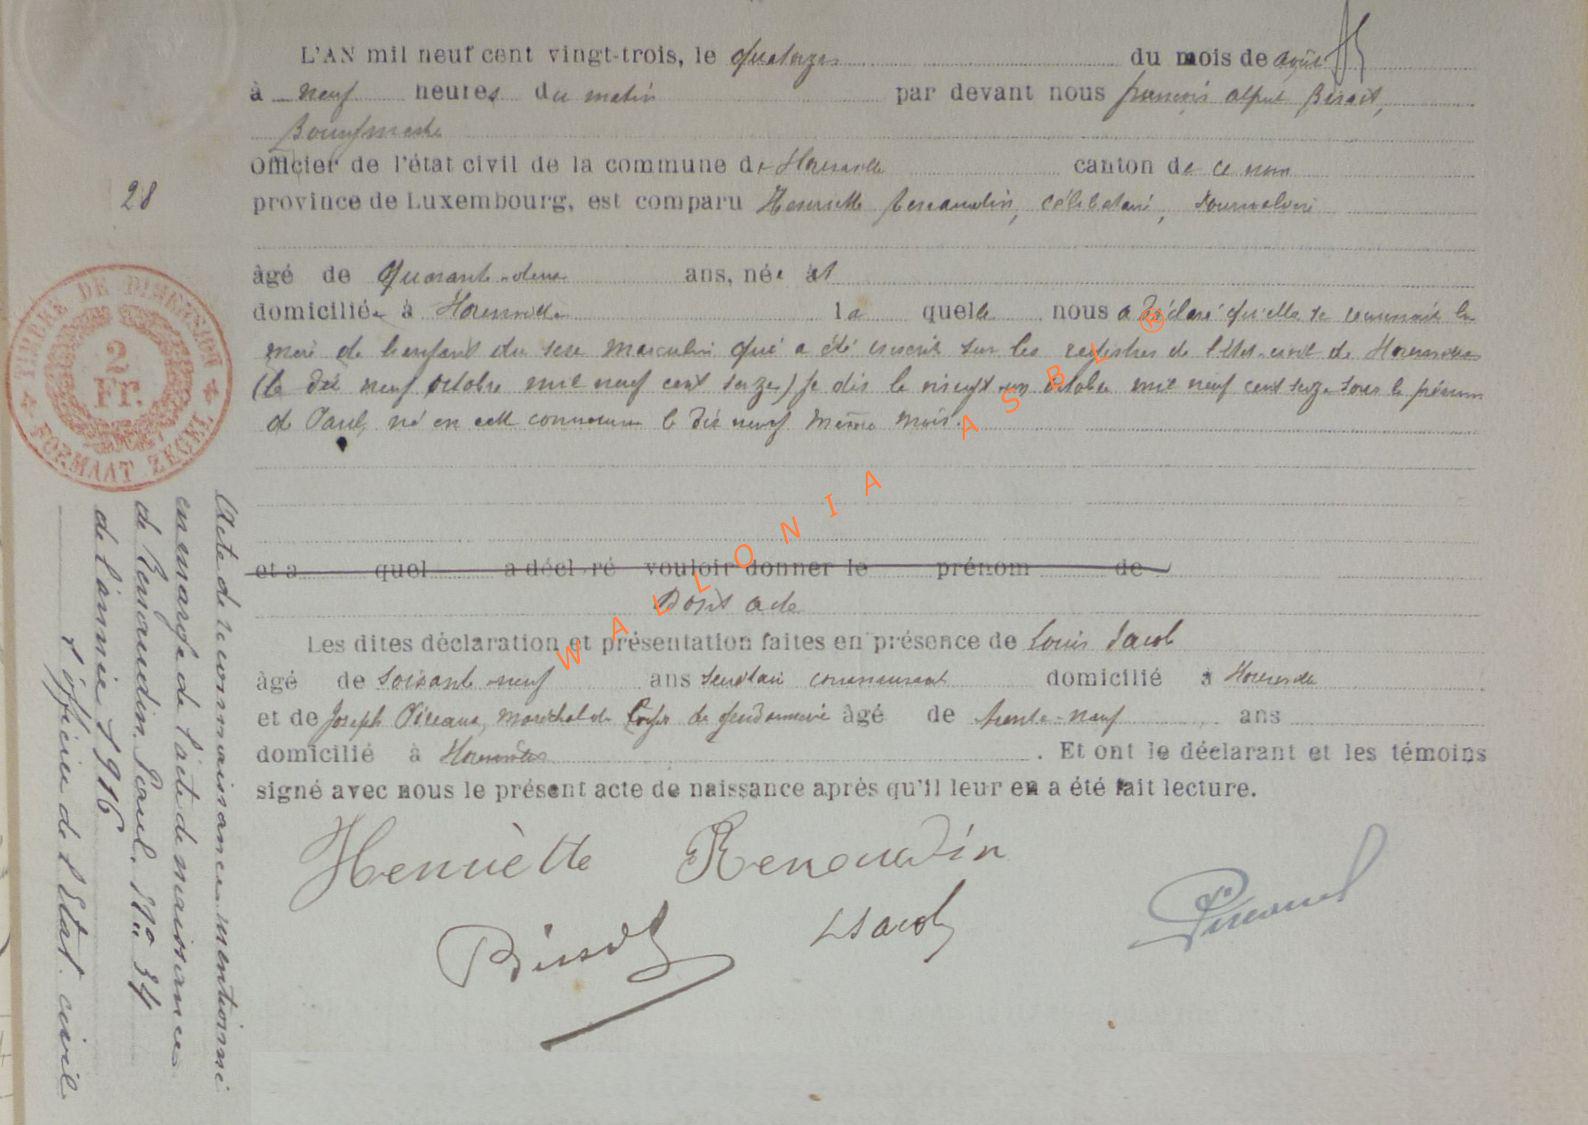 L'AN mil neuf cent vingt-trois, le quatorze du mois de août
à neuf heures du matin par devant nous François Benoit,
Bourgmestre
Officier de l'état civil de la commune de Houffalize canton de ce nom
28
province de Luxembourg, est comparu Henriette Renaudin, célibataire, Journalière
âgé de Quarante-deux ans, née à
domiciliée à Houffalize la quelle nous a déclaré qu'elle se reconnait la
mère de l'enfant du sexe masculin qui a été inscrit sur les registres de l'état-civil de Houffalize
(le dix neuf octobre mil neuf cent seize) je dis le vingt un octobre mil neuf cent seize sous le prénom
de Paul, né en cette commune le dix neuf même mois.
TIMBRE DE DIMENSION
2 Fr.
FORMAAT ZEGEL
et a quel a déclaré vouloir donner le prénom de
Dont acte
Les dites déclaration et présentation faites en présence de Louis Jacob
âgé de soixante neuf ans secrétaire communal domicilié à Houffalize
et de Joseph maréchal des logis de gendarmerie âgé de trente-neuf ans
domicilié à Houffalize. Et ont le déclarant et les témoins
signé avec nous le présent acte de naissance après qu'il leur en a été fait lecture.
Henriette Renaudin
LJacob
Acte de reconnaissance mentionné
en marge de l'acte de naissance
de Renaudin Paul. N° 34
de l'année 1916
L'officier de l'Etat. civil
WALLONIA ASBL ®